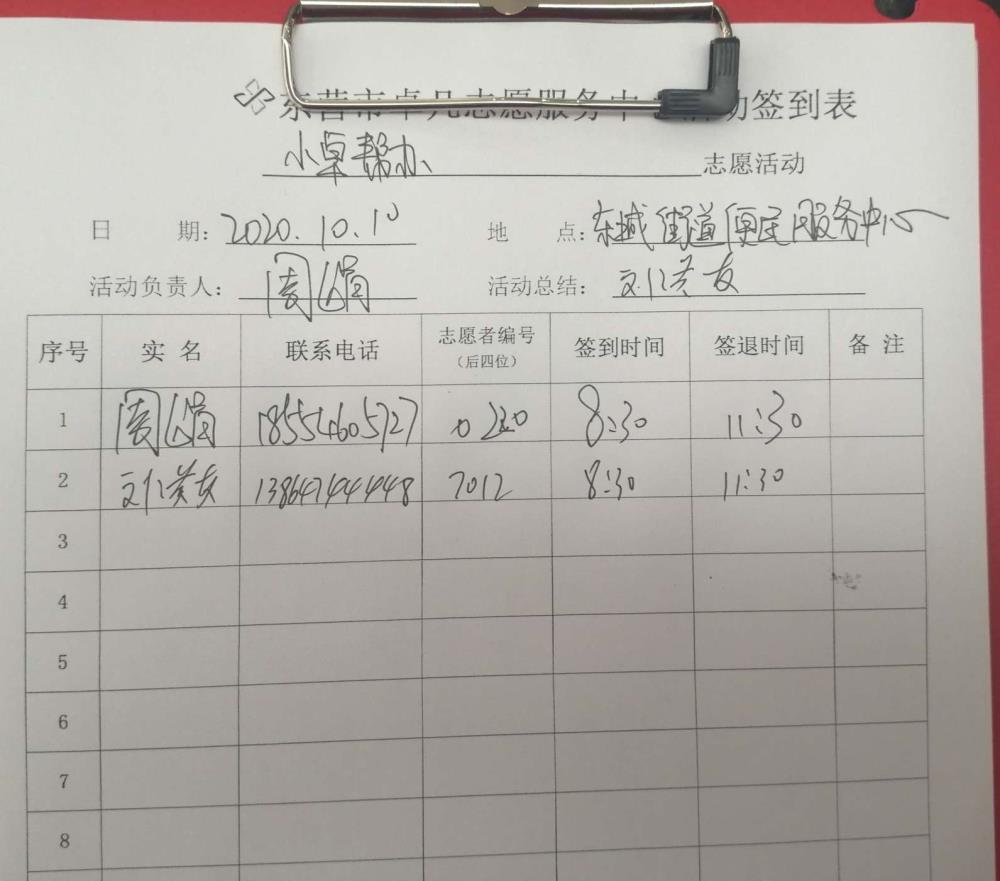 东营市卓凡志愿服务中心活动签到表
小卓帮办 志愿活动
日 期: 2020.10.10 地 点: 东城街道便民服务中心
活动负责人: 周娟 活动总结: 刘英友
序号 实 名 联系电话 志愿者编号(后四位) 签到时间 签退时间 备 注
1 周娟 18554605727 0220 8:30 11:30
2 刘英友 13864744448 7012 8:30 11:30
3
4
5
6
7
8